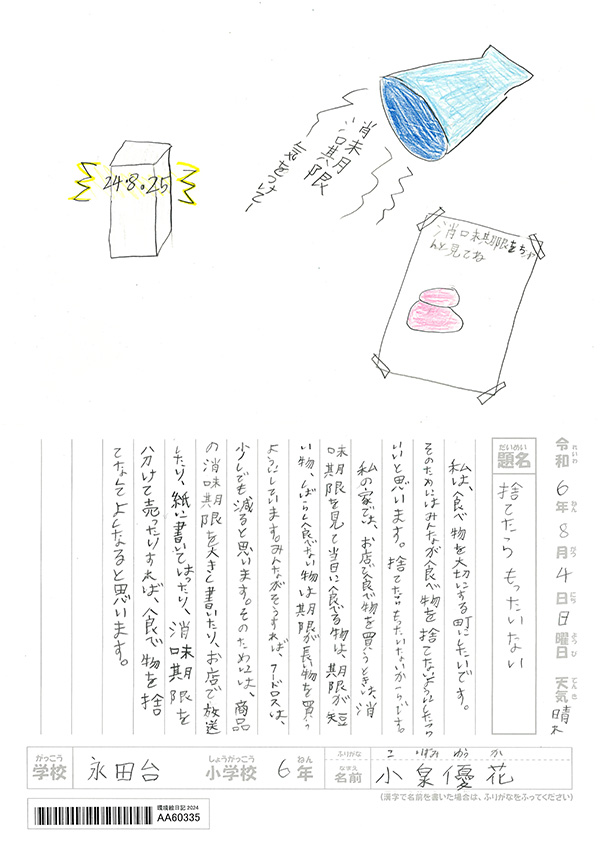 24・8・25
消味期限
気をつけてー
消味期限をちゃ
んと見てね
令和6年8月4日日曜日 天気 晴れ
れいわ ねん がつ にち ようび てんき
だいめい
題名
捨てたらもったいない
私は、食べ物を大切にする町にしたいです。
そのためにはみんなが食べ物を捨てないようにしたら
いいと思います。捨てたらもったいないからです。
私の家では、お店で食べ物を買うときは、消
味期限を見て当日に食べる物は、期限が短
い物、しばらく食べない物は期限が長い物を買う
ようにしています。みんながそうすれば、フードロスは、
少しでも減ると思います。そのためには、商品
の消味期限を大きく書いたり、お店で放送
したり、紙に書いてはったり、消味期限を
分けて売ったりすれば、食べ物を捨
てなくてよくなると思います。
がっこう
学校
永田台
しょうがっこう
小学校
6年
ねん
ふりがな
こ いずみ ゆう か
なまえ
名前
小泉優花
(漢字で名前を書いた場合は、ふりがなをふってください)
環境絵日記2024
AA60335